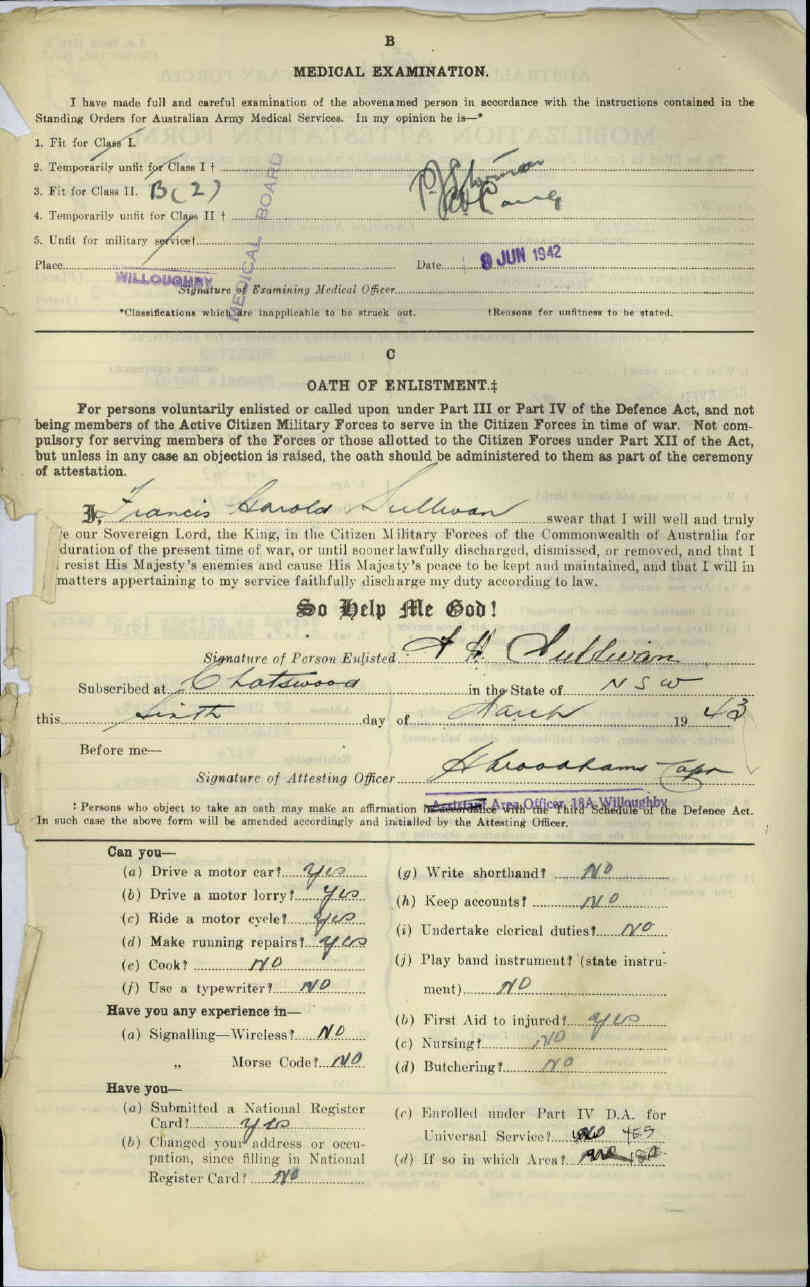 B
MEDICAL EXAMINATION.
I have made full and careful examination of the abovenamed person in accordance with the instructions contained in the
Standing Orders for Australian Army Medical Services. In my opinion he is—*
1. Fit for Class I.
2. Temporarily unfit for Class I †
3. Fit for Class II. B(2)
4. Temporarily unfit for Class II †
5. Unfit for military service†
MEDICAL BOARD
Place WILLOUGHBY Date 9 JUN 1942
Signature of Examining Medical Officer
*Classifications which are inapplicable to be struck out. †Reasons for unfitness to be stated.
C
OATH OF ENLISTMENT.‡
For persons voluntarily enlisted or called upon under Part III or Part IV of the Defence Act, and not
being members of the Active Citizen Military Forces to serve in the Citizen Forces in time of war. Not com-
pulsory for serving members of the Forces or those allotted to the Citizen Forces under Part XII of the Act,
but unless in any case an objection is raised, the oath should be administered to them as part of the ceremony
of attestation.
I, Francis Harold Sullivan swear that I will well and truly
e our Sovereign Lord, the King, in the Citizen Military Forces of the Commonwealth of Australia for
duration of the present time of war, or until sooner lawfully discharged, dismissed, or removed, and that I
resist His Majesty's enemies and cause His Majesty's peace to be kept and maintained, and that I will in
matters appertaining to my service faithfully discharge my duty according to law.
So Help Me God!
Signature of Person Enlisted F H Sullivan
Subscribed at Chatswood in the State of NSW
this Sixth day of March 1943
‡ Before me—
Signature of Attesting Officer Capt
Assistant Area Officer, 18A, Willoughby
‡ Persons who object to take an oath may make an affirmation in accordance with the Third Schedule of the Defence Act.
In such case the above form will be amended accordingly and initialled by the Attesting Officer.
Can you—
(a) Drive a motor car? Yes
(b) Drive a motor lorry? Yes
(c) Ride a motor cycle? Yes
(d) Make running repairs? Yes
(e) Cook? NO
(f) Use a typewriter? NO
(g) Write shorthand? NO
(h) Keep accounts? NO
(i) Undertake clerical duties? NO
(j) Play band instrument? (state instru-
ment) NO
Have you any experience in—
(a) Signalling—Wireless? NO
„ Morse Code? NO
(b) First Aid to injured? Yes
(c) Nursing? NO
(d) Butchering? NO
Have you—
(a) Submitted a National Register
Card? Yes
(b) Changed your address or occu-
pation, since filling in National
Register Card? NO
(c) Enrolled under Part IV D.A. for
Universal Service? YES
(d) If so in which Area? 18A